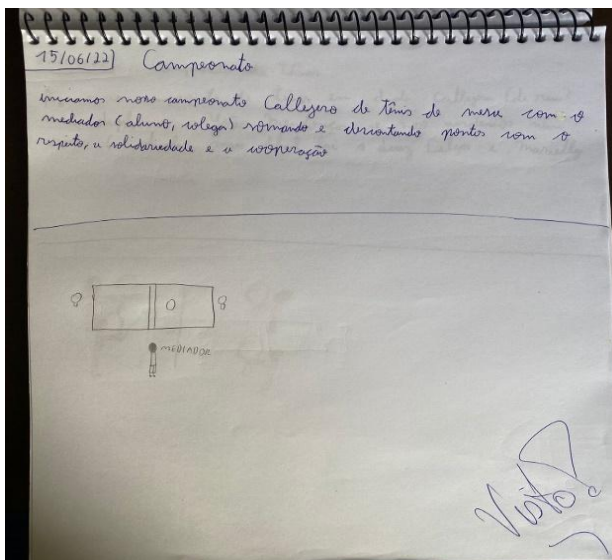 15/06/22) Campeonato
iniciamos nosso campeonato Callejero de tênis de mesa com o
mediador (aluno, colega) somando e descontando pontos com o
respeito, a solidariedade e a cooperação
MEDIADOR
Visto!